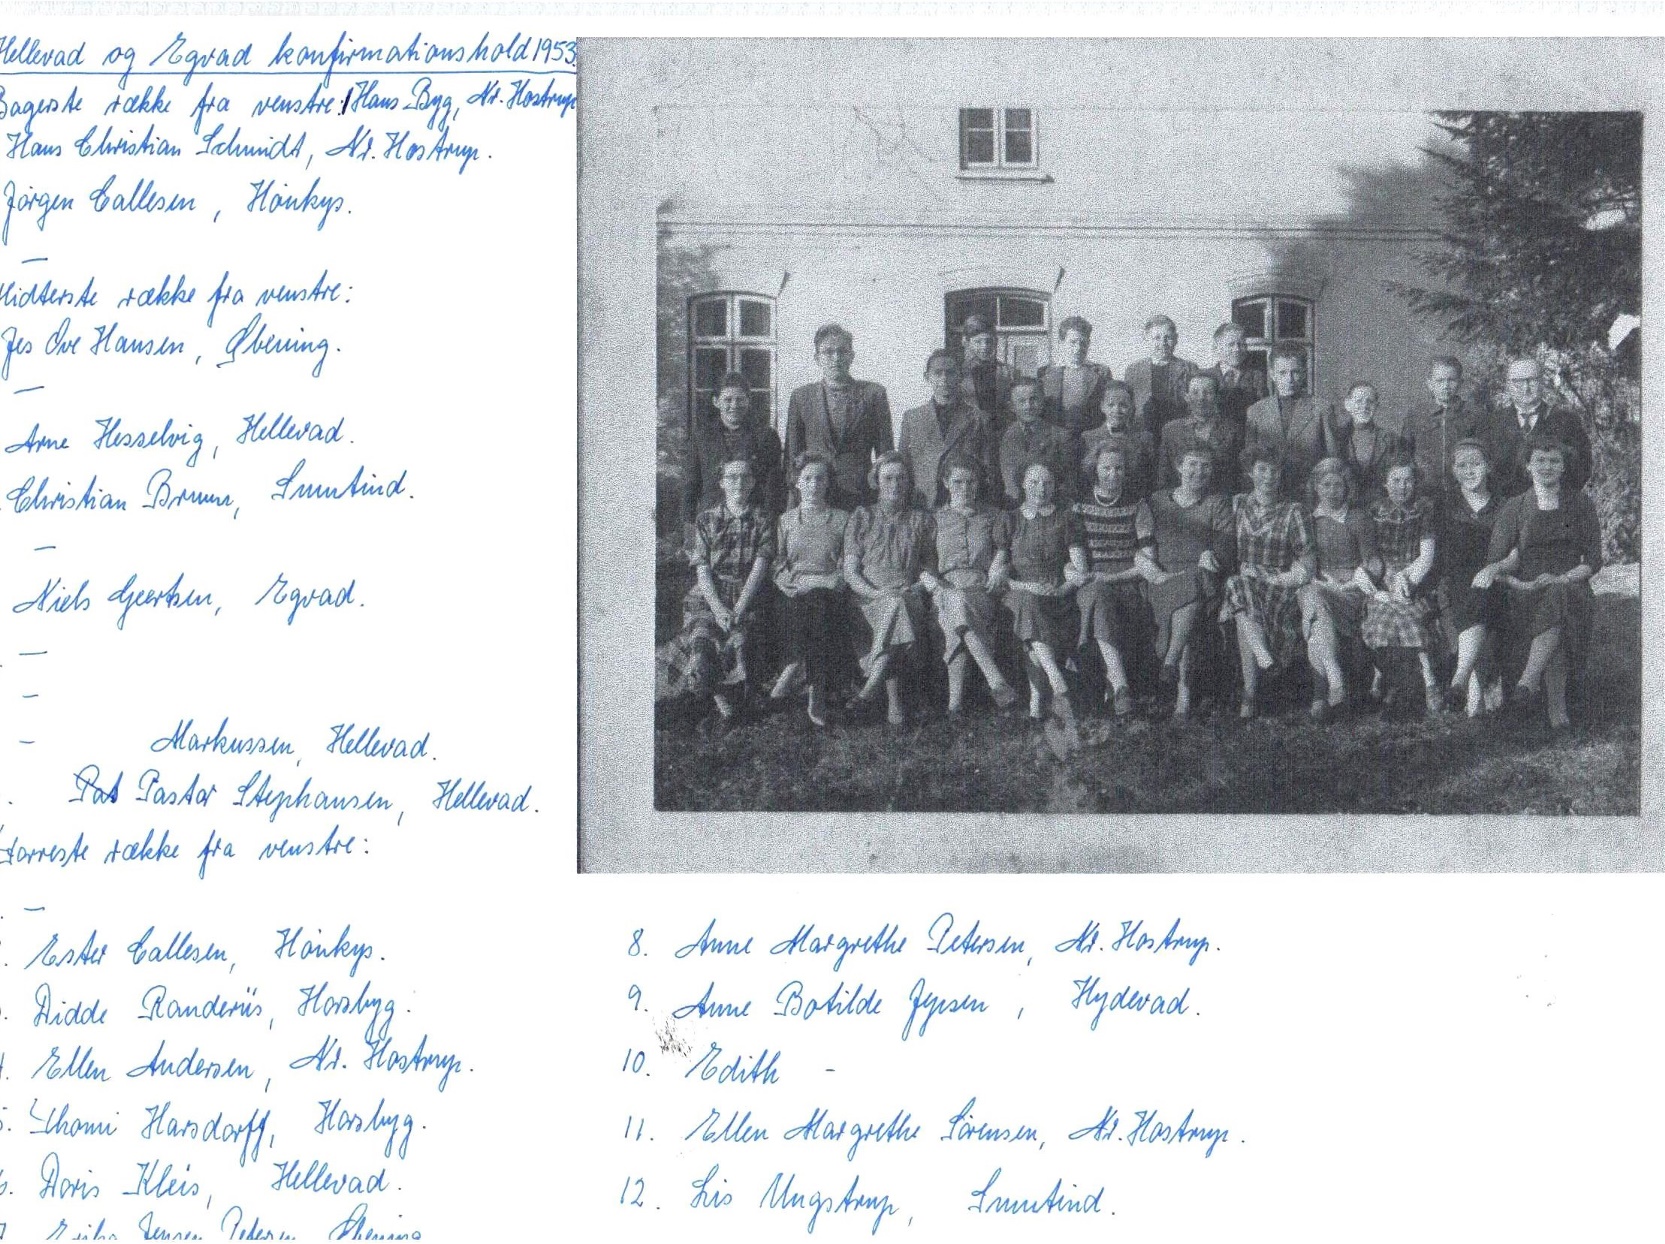 Hellevad og Egvad konfirmationshold 1953.
Bagerste række fra venstre: Hans Byg, Nr. Hostrup
Hans Christian Schmidt, Nr. Hostrup.
Jørgen Callesen, Hønkys.
—
Midterste række fra venstre:
Jes Ove Hansen, Øbening.
—
Arne Hesselvig, Hellevad.
Christian Bruun, Smutind.
—
Niels Geertsen, Egvad.
—
-
- Markussen, Hellevad.
Pastor Stephansen, Hellevad.
Forreste række fra venstre:
—
Ester Callesen, Hønkys.
Didde Randeriis, Horsbyg.
Ellen Andersen, Nr. Hostrup.
Harsdorff, Horsbyg.
Doris Kleis, Hellevad.
Jensen Petersen Øbening
8. Anne Margrethe Petersen, Nr. Hostrup.
9. Anne Botilde Jepsen, Hydevad.
10. Edith -
11. Ellen Margrethe Sørensen, Nr. Hostrup.
12. Lis Ungstrup, Smutind.